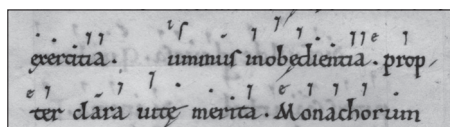 exercitia. inobedientia. prop/
ter clara uitę merita. Monachorum